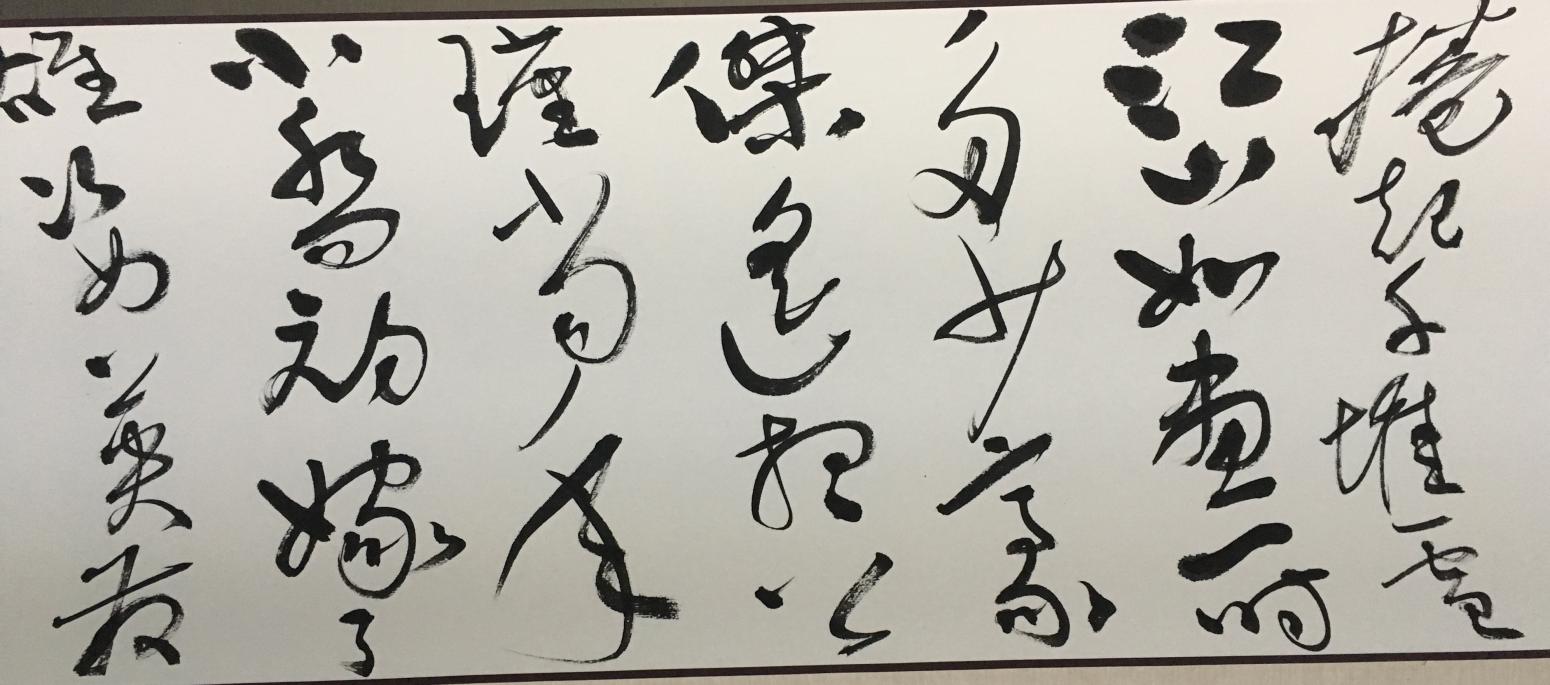 捲起千堆雪
江山如畫一時
多少豪
傑遥想公
瑾當年
小喬初嫁了
雄姿英發